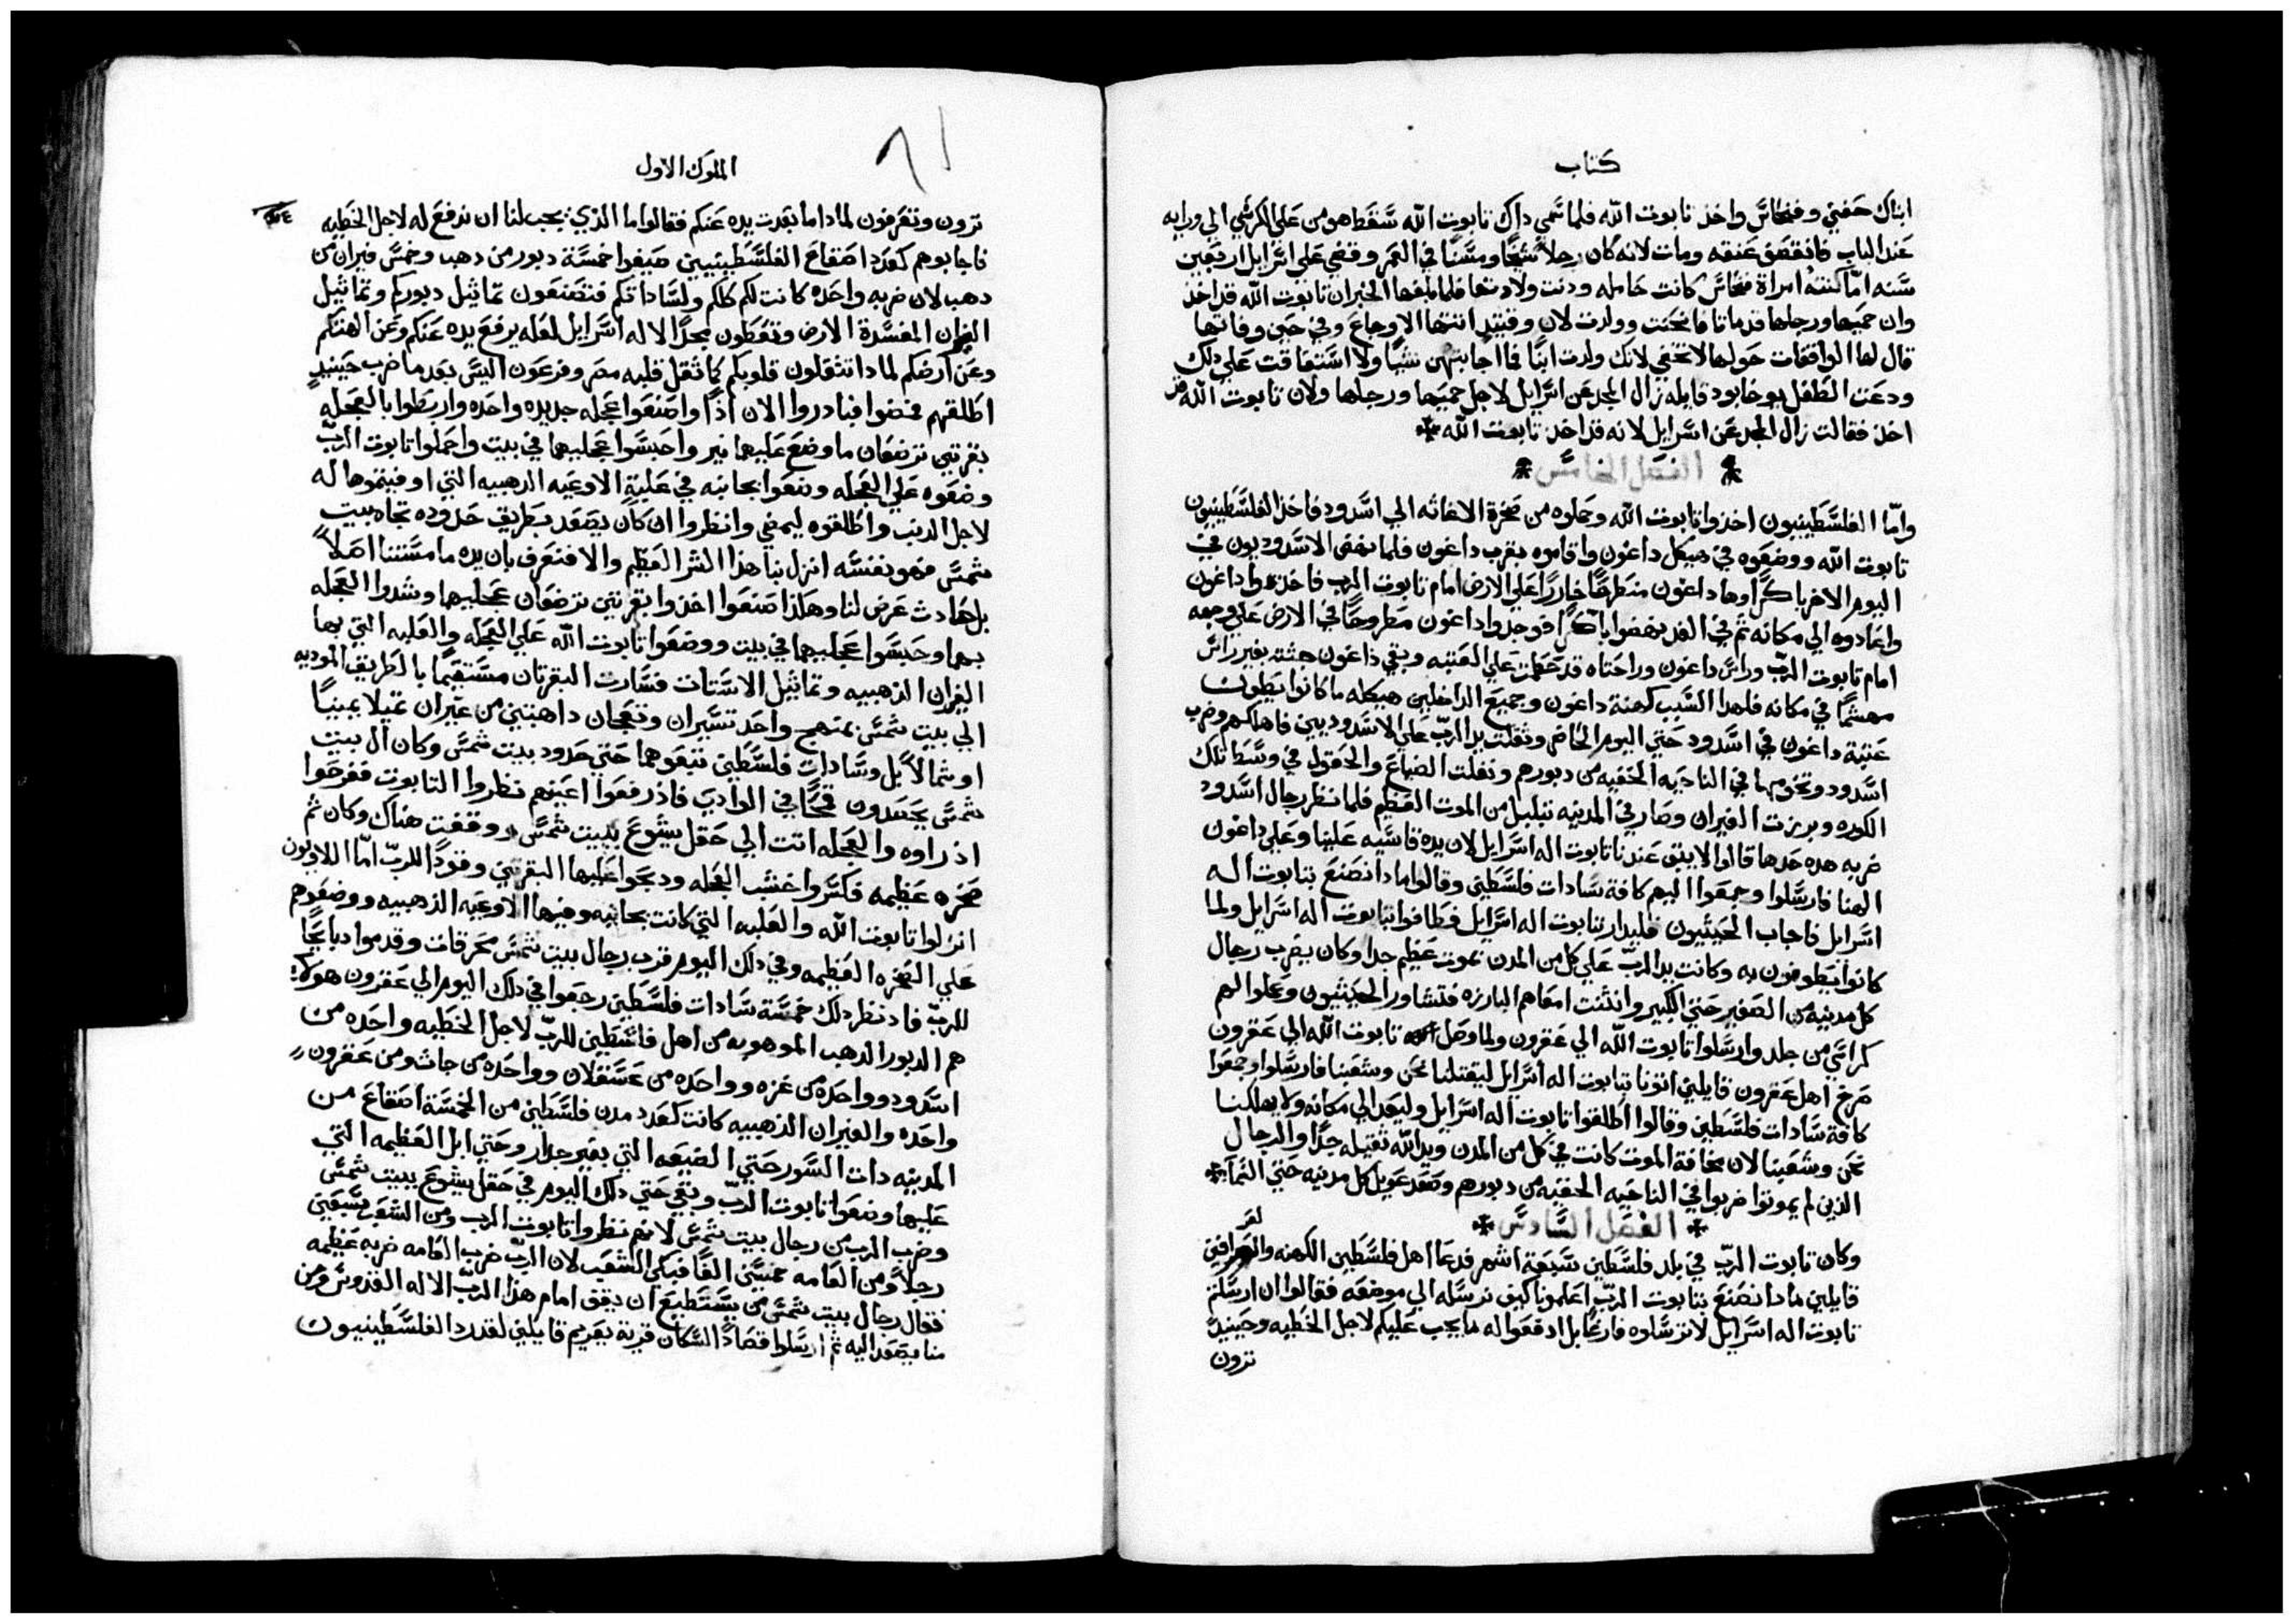 كتاب
ابناك حفني وفنحاس واخذ تابوت الله فلما سمي داك تابوت الله سقط هو من علي الكرسي الي ورايه
عند الباب فانقصف عنقه ومات لانه كان رجلاً شيخاً ومسناً في العمر وقضي علي اسرايل اربعين
سنه امّا كنته امراة فنحاس كانت حامله ودنت ولادتها فلما بلغها الخبران تابوت الله قد اخذ
وان حميها ورجلها قد ماتا فانحنت وولدت لان وقتيد اتتها الاوجاع وفي حين وفاتها
قال لها الواقفات حولها لا تخافي لانك ولدت ابناً فما اجابتهن شياً ولا استفاقت علي دلك
ودعت الطفل يوخابود قايله زال المجد عن اسرايل لاجل حميها ورجلها ولان تابوت الله قد
اخذ فقالت زال المجد عن اسرايل لانه قد اخذ تابوت الله
الفصل الخامس
وامّا الفلسطينيون اخذوا تابوت الله وحملوه من صخرة الاغاثه الي اسدود فاخذ الفلسطينيون
تابوت الله ووضعوه في هيكل داغون واقاموه بقرب داغون فلما نهض الاسدوديون في
اليوم الاخر باكراً وها داغون منطرحاً خاررا علي الارض امام تابوت الرب فاخذوا داغون
واعادوه الي مكانه ثم في الغد نهضوا باكراً فوجدوا داغون مطروحاً في الارض علي وجهه
امام تابوت الربّ وراس داغون وراحتاه قد قطعت علي العتبه وبقي داغون جثته بغير راس
مهشماً في مكانه فلهدا السبب كهنة داغون وجميع الداخلين هيكله ما كانوا يطون
عتبة داغون في اسدود حتي اليوم الحاضر وثقلت يد الربّ علي الاسدوديين فاهلكهم وضرب
اسدود وتخومها في الناحيه الخفيه من دبورهم ونفلت الضياع والحقول في وسط تلك
الكوره وبرزت الفيران وصار في المدينه تبلبل من الموت العظيم فلما نظر رجال اسدود
ضربه هده حدها قالوا لا يبق عندنا تابوت اله اسرايل لان يده قاسيه علينا وعلي داغون
الهنا فارسلوا وجمعوا اليهم كافة سادات فلسطين وقالوا مادا نصنع بتابوت اله
اسرايل فاجاب الجيثيون فليدار بتابوت اله اسرايل فطافوا بتابوت اله اسرايل ولما
كانوا يطوفون به وكانت يد الربّ علي كل من المدن بموت عظيم جدا وكان يضرب رجال
كل مدينه من الصغير حتي الكبير وانتنت امعاهم البارزه فتشاور الجيثيون وعملوا لهم
كراسي من جلد وارسلوا تابوت الله الي عقرون ولما وصل تابوت الله الي عقرون
صرخ اهل عقرون قايلين اتونا بتابوت اله اسرايل ليقتلنا نحن وشعبنا فارسلوا وجمعوا
كافة سادات فلسطين وقالوا اطلقوا تابوت اله اسرايل وليعد الي مكانه ولا يهلكنا
نحن وشعبنا لان مخافة الموت كانت في كل من المدن ويد الله ثقيله جدّاً والرجال
الذين لم يموتوا ضربوا في الناحيه الخفيه من دبورهم وصعد عويل كل مدينه حتي السما
الفصل السادس
وكان تابوت الربّ في بلد فلسطين سبعة اشهر فدعا اهل فلسطين الكهنه والعرافين
قايلين مادا نصنع بتابوت الربّ اعلمونا كيف نرسله الي موضعه فقالوا ان ارسلتم
تابوت اله اسرايل لا ترسلوه فارغاً بل ادفعوا له ما يجب عليكم لاجل الخطيه وحينيدً
ترون
الملوك الاول
٦١
ترون وتعرفون لمادا ما بعدت يده عنكم فقالوا ما الذي يجب لنا ان ندفع له لاجل الخطيه
فاجابوهم كعدد اصقاع الفلسطينيين صيغوا خمسة دبور من دهب وخمس فيران من
دهب لان ضربه واحده كانت لكم كلكم ولساداتكم فتصنعون تماثيل دبوركم وتماثيل
الفيران المفسدة الارض وتعطون مجداً لاله اسرايل لعله يرفع يده عنكم وعن الهتكم
وعن ارضكم لمادا تثقلون قلوبكم كما ثقل قلبه مصر وفرعون اليس بعد ما ضرب حينيدٍ
اطلقهم فمضوا فبادروا الان اذاً واصنعوا عجله جديده واحده واربطوا بالعجله
بقرتين ترضعان ما وضع عليهما نير واحبسوا عجليهما في بيت واحملوا تابوت الربّ
وضعوه علي العجله وضعوا بجانبه في علبة الاوعيه الدهبيه التي اوفيتموها له
لاجل الدنب واطلقوه ليمضي وانظروا ان كان يصعد بطريق حدوده تجاه بيت
شمس فهو بنفسه انزل بنا هذا الشر العظيم والا فنعرف بان يده ما مستنا اصلاً
بل حادث عرض لنا وهكذا صنعوا اخذوا بقرتين ترضعان عجليهما وشدوا العجله
بهما وحبسوا عجليهما في بيت ووضعوا تابوت الله علي العجله والعلبه التي بها
الفيران الدهبيه وتماثيل الاستات فسارت البقرتان مستقيماً بالطريق الموديه
الي بيت شمس بمنهج واحد تسيران وتعجان داهبتين من غير ان تميلا يميناً
او شمالاً بل وسادات فلسطين تتبعوهما حتي حدود بيت شمس وكان ال بيت
شمس يحصدون قمحاً في الوادي فاذ رفعوا اعينهم نظروا التابوت ففرحوا
اذ راوه والعجله اتت الي حقل يشوع ببيت شمس ووقفت هناك وكان ثم
صخره عظيمه فكسروا خشب العجله ودبحوا عليها البقرتين وقوداً للربّ امّا اللاويون
انزلوا تابوت الله والعلبه التي كانت بجانبه وفيها الاوعيه الذهبيه ووضعوهم
علي الصخره العظيمه وفي دلك اليوم قرب رجال بيت شمس محرقات وقدموا دبايحاً
للربّ فاد نظر دلك خمسة سادات فلسطين رجعوا في دلك اليوم الي عقرون هولاء
هم الدبور الدهب الموهوبه من اهل فلسطين للربّ لاجل الخطيه واحده من
اسدود وواحده من غزه وواحده من عسقلان وواحده من جاث ومن عقرون
واحده والفيران الذهبيه كانت كعدد مدن فلسطين من الخمسة اصقاع من
المدينه دات السور حتي الضيعه التي بغير جدار وحتي ابل العظيمه التي
عليها وضعوا تابوت الربّ وبقي حتي دلك اليوم في حقل يشوع ببيت شمس
وضرب الرب من رجال بيت شمس لانهم نظروا تابوت الرب ومن الشعب سبعين
رجلاً ومن العامه خمسين الفاً فبكي الشعب لان الربّ ضرب العامه ضربه عظيمه
فقال رجال بيت شمس من يستطيع ان يقف امام هذا الربّ الاله القدوس ومن
منا يصعد اليه ثم ارسلوا قصاداً لسكان قرية يعريم قايلين لقد رد الفلسطينيون